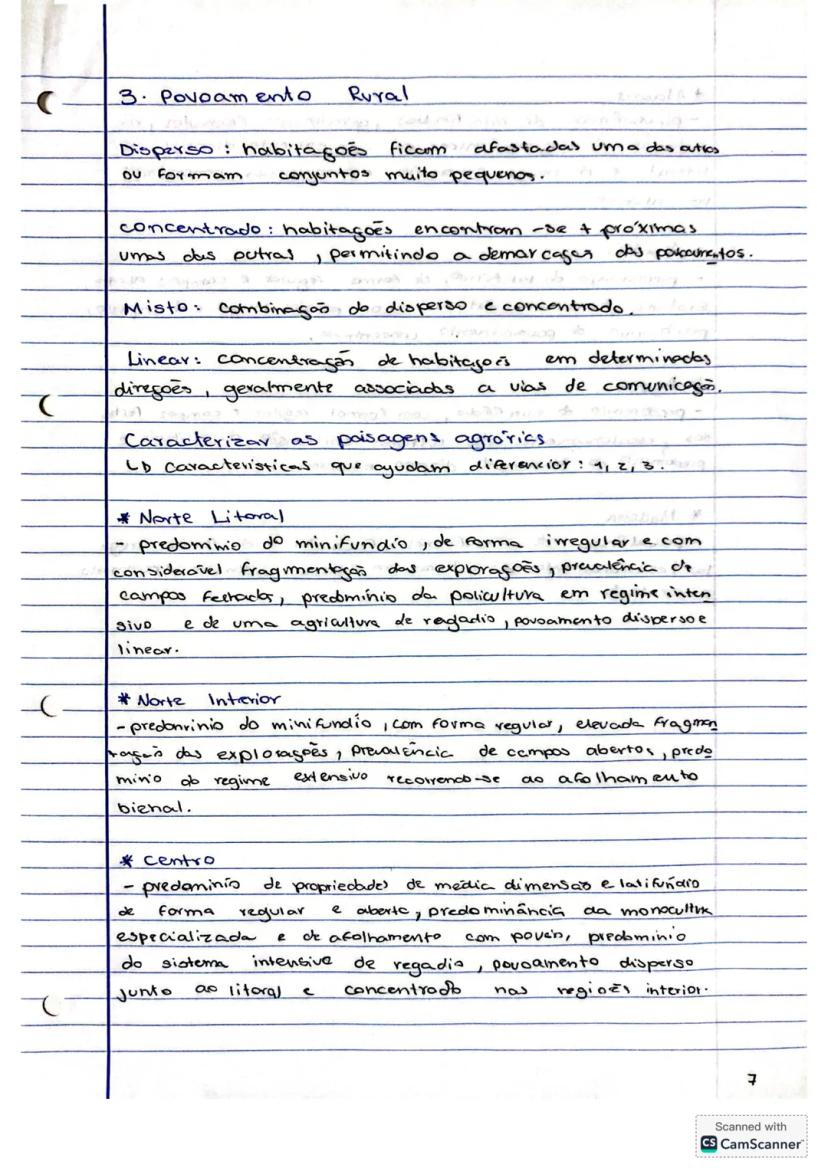 3. Povoamento Rural
Disperso : habitações ficam afastadas uma das outras
ou formam conjuntos muito pequenos.
concentrado : habitações encontram-se + próximas
umas das outras , permitindo a demarcação dos povoamentos.
Misto : combinação do disperso e concentrado.
Linear : concentração de habitações em determinadas
direções , geralmente associadas a vias de comunicação.
Caracterizar as paisagens agrárias
↳ características que ajudam diferenciar : 1, 2, 3.
* Norte Litoral
- predomínio do minifundio , de forma irregular e com
considerável fragmentação das explorações, prevalência de
campos fechados, predomínio da policultura em regime inten
sivo e de uma agricultura de regadio , povoamento disperso e
linear.
* Norte Interior
- predomínio do minifundio , com forma regular, elevada fragmen
tação das explorações, prevalência de campos abertos, predo
mínio do regime extensivo recorrendo-se ao afolhamento
bienal.
* Centro
- predominio de propriedades de média dimensão e latifúndio
de forma regular e aberta, predominância da monocultura
especializada e de afolhamento com pousio, predomínio
do sistema intensivo de regadio , povoamento disperso
junto ao litoral e concentrado nas regiões interior.
7
Scanned with
CS CamScanner